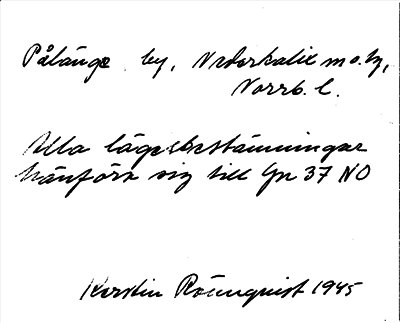 Pålänge by, Nederkalix sn o. tg,
Norrb. l.
Alla lägesbestämningar
hänföra sig till Gn 37 NO
Kerstin Rönnquist 1945